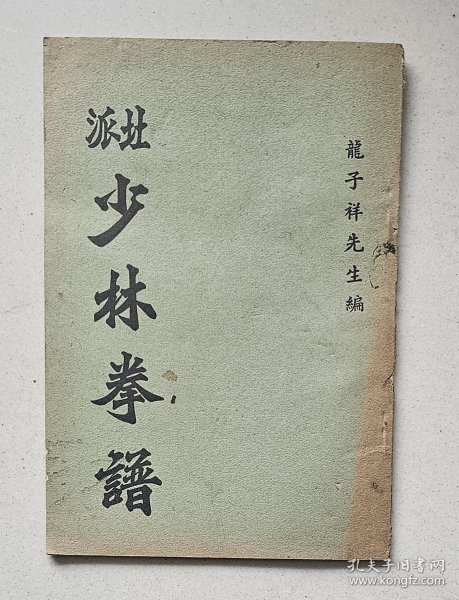 龍子祥先生編
北派
少林拳譜
孔夫子旧书网
www.kongfz.com